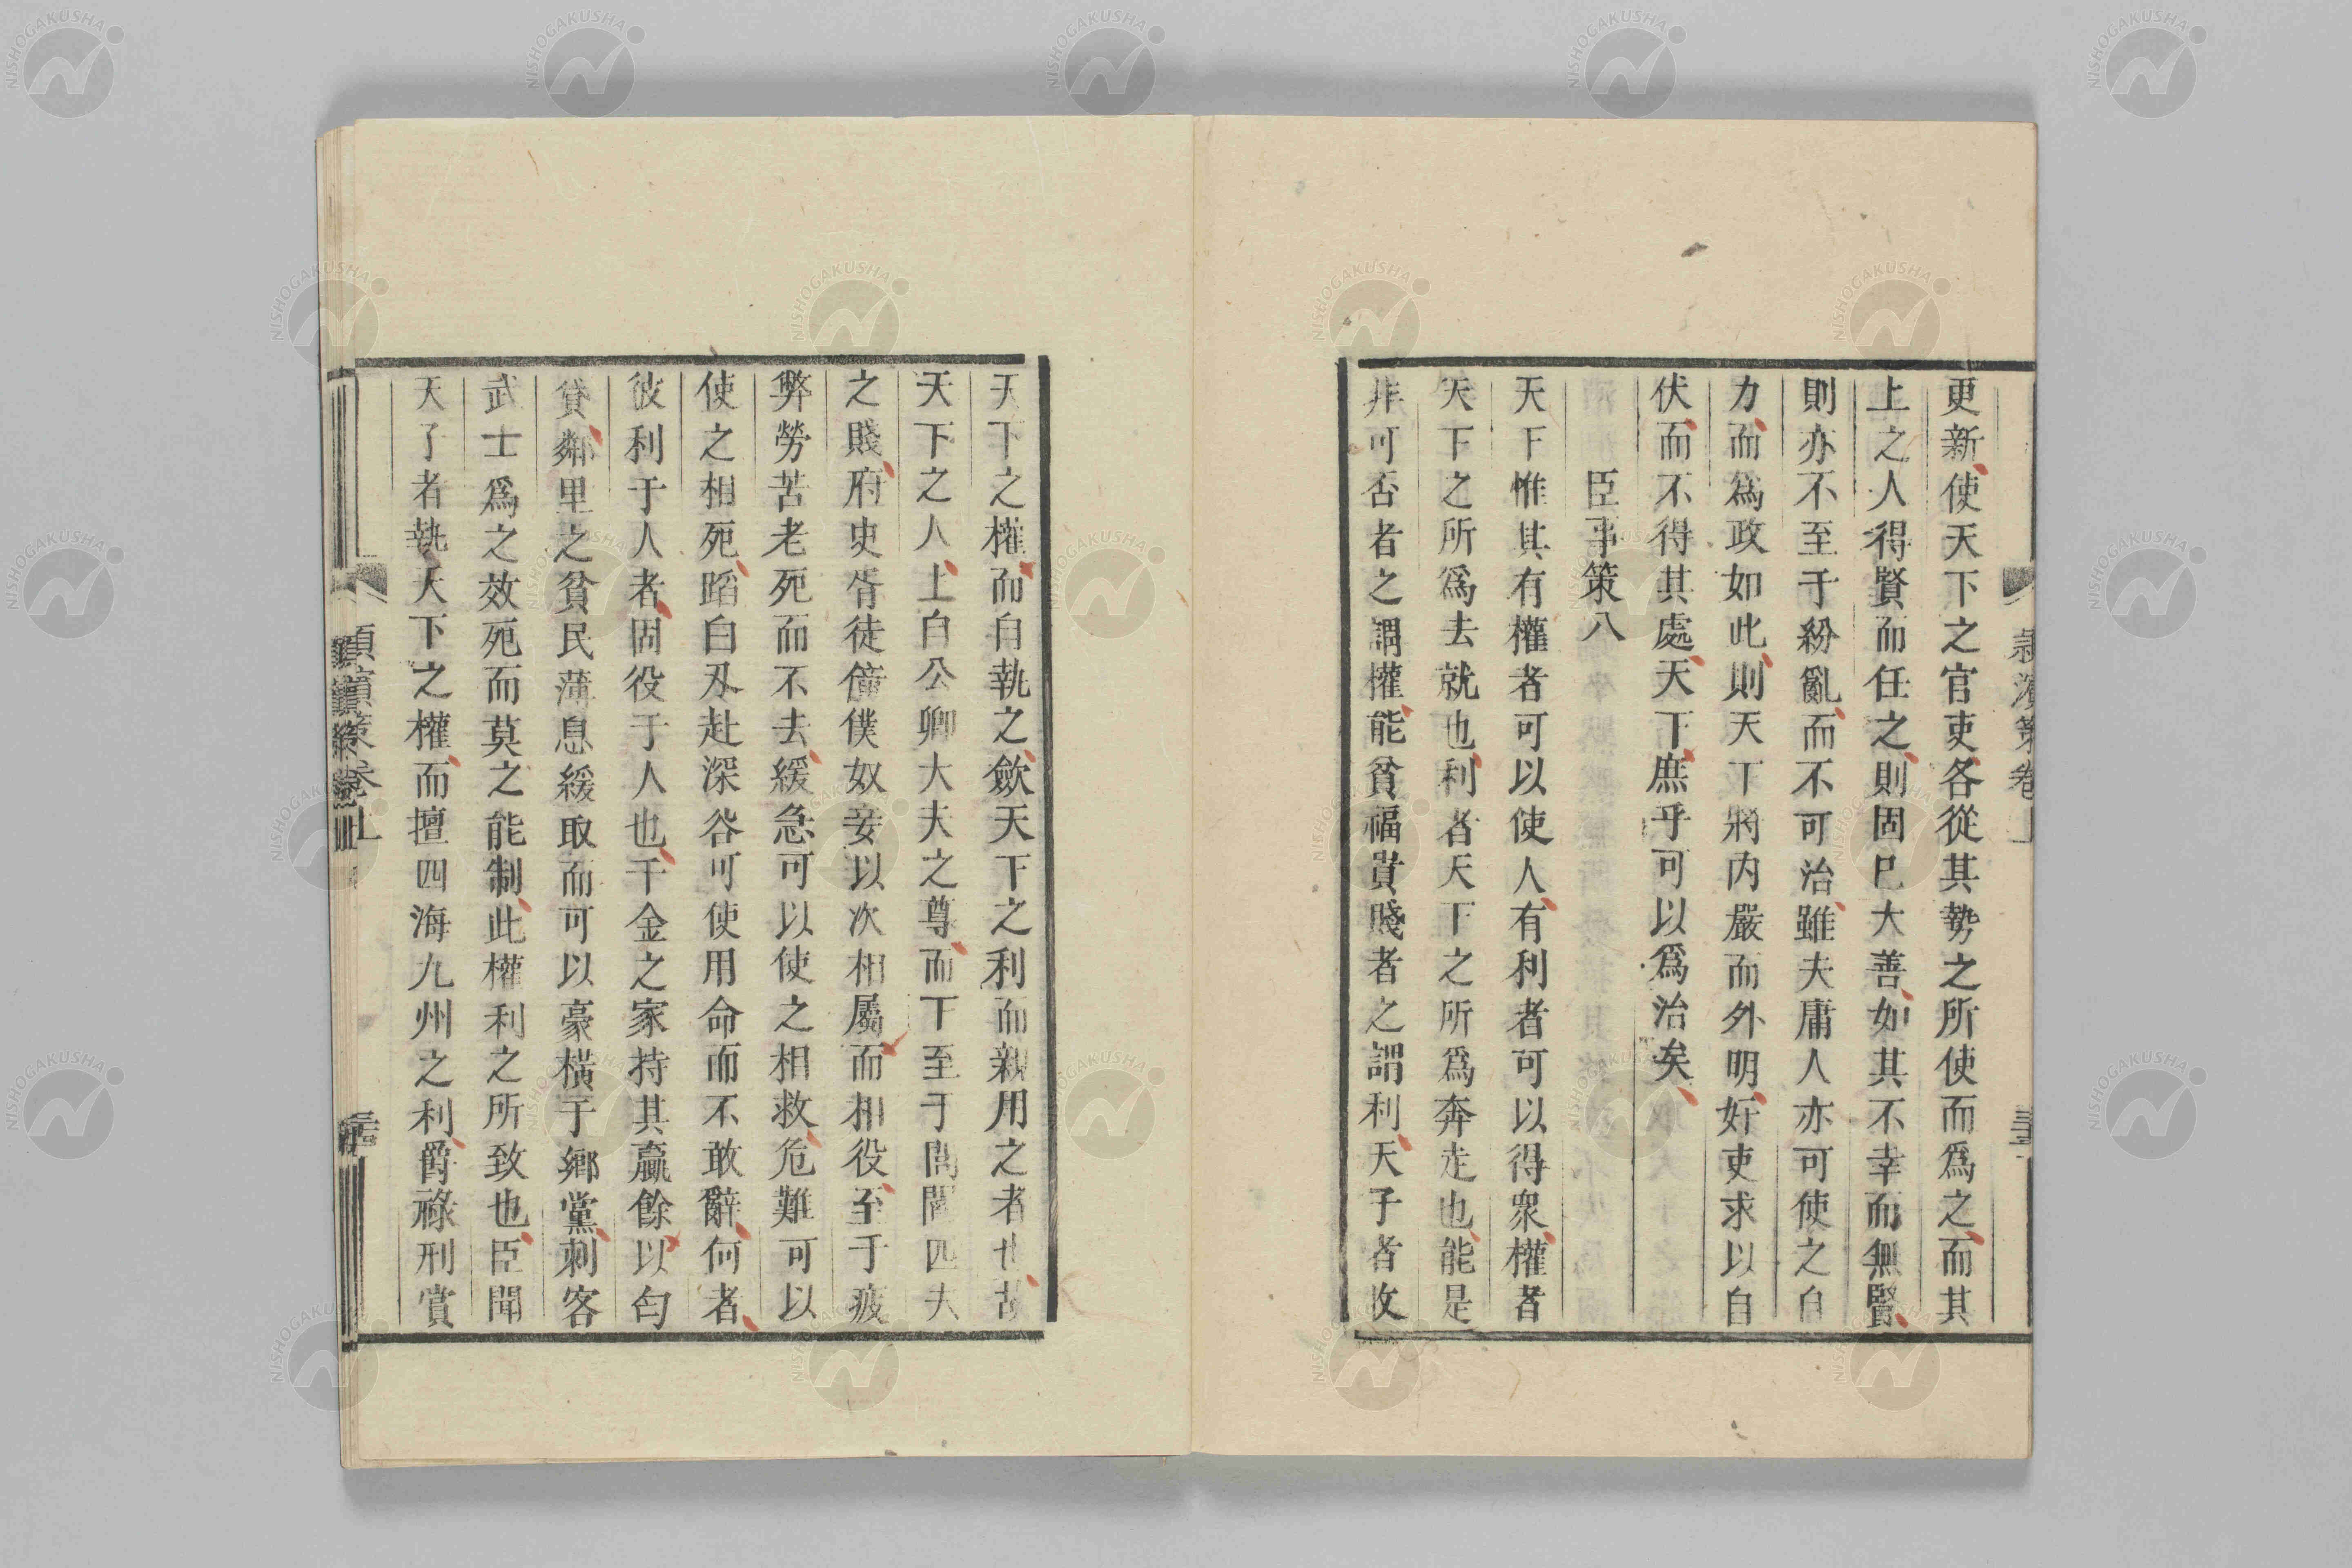 更新使天下之官吏各從其勢之所使而爲之而其
上之人得賢而任之則固已大善如其不幸而無賢
則亦不至于紛亂而不可治雖夫庸人亦可使之自
力而爲政如此則天下將内嚴而外明奸吏求以自
伏而不得其處天下庶乎可以爲治矣
臣事策八
天下惟其有權者可以使人有利者可以得衆權者
天下之所爲去就也利者天下之所爲奔走也能是
非可否者之謂權能貧福貴賤者之謂利天子者收
天下之權而自執之歛天下之利而親用之者也故
天下之人上自公卿大夫之尊而下至于閭閻匹夫
之賤府史胥徒僮僕奴妾以次相屬而相役至于疲
弊勞苦老死而不去緩急可以使之相救危難可以
使之相死蹈白刄赴深谷可使用命而不敢辭何者
彼利于人者固役于人也千金之家持其贏餘以匄
貸鄰里之貧民薄息緩取而可以豪橫于鄉黨刺客
武士爲之效死而莫之能制此權利之所致也臣聞
天子者執天下之權而擅四海九州之利爵祿刑賞
潁濱策卷上
NISHOGAKUSHA